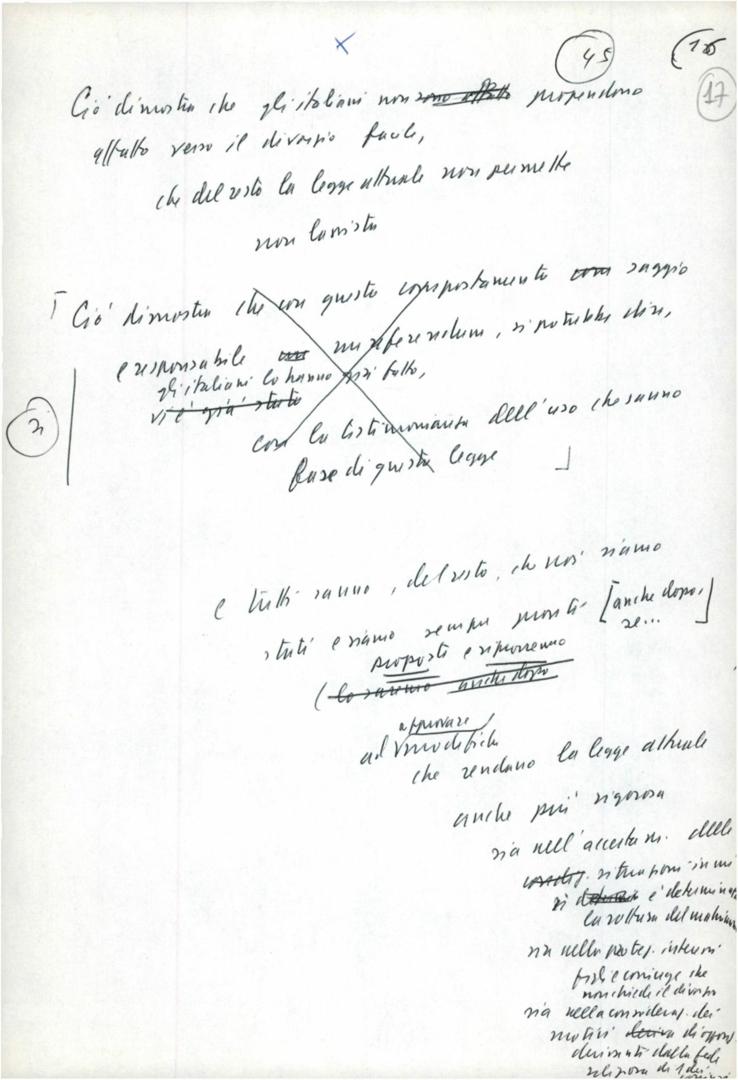 45
125
17
Ciò dimostra che gli italiani non sono affatto propendono
affatto verso il divorzio facile,
che del resto la legge attuale non permette
non la vista
Ciò dimostra che con questo comportamento com saggio
e responsabile un un referendum, si potrebbe dire,
gli italiani lo hanno già fatto,
vi è già stato
con la testimonianza dell'uso che sanno
fare di questa legge
e tutti sanno, del resto, che noi siamo
stati e siamo sempre pronti [anche dopo,]
se...
proposti e riproporremo
(lo saremo anche dopo
approvare
ad modifiche
che rendano la legge attuale
anche più rigorosa
sia nell'accertam. delle
situazioni in cui
si è determinata
la rottura del matrimon
sia nella proteg. interessi
figli e coniuge che
non chiede il divorzio
sia nella consideraz. dei
motivi di oppos.
derivanti dalla fede
religiosa di 1 dei
coniugi